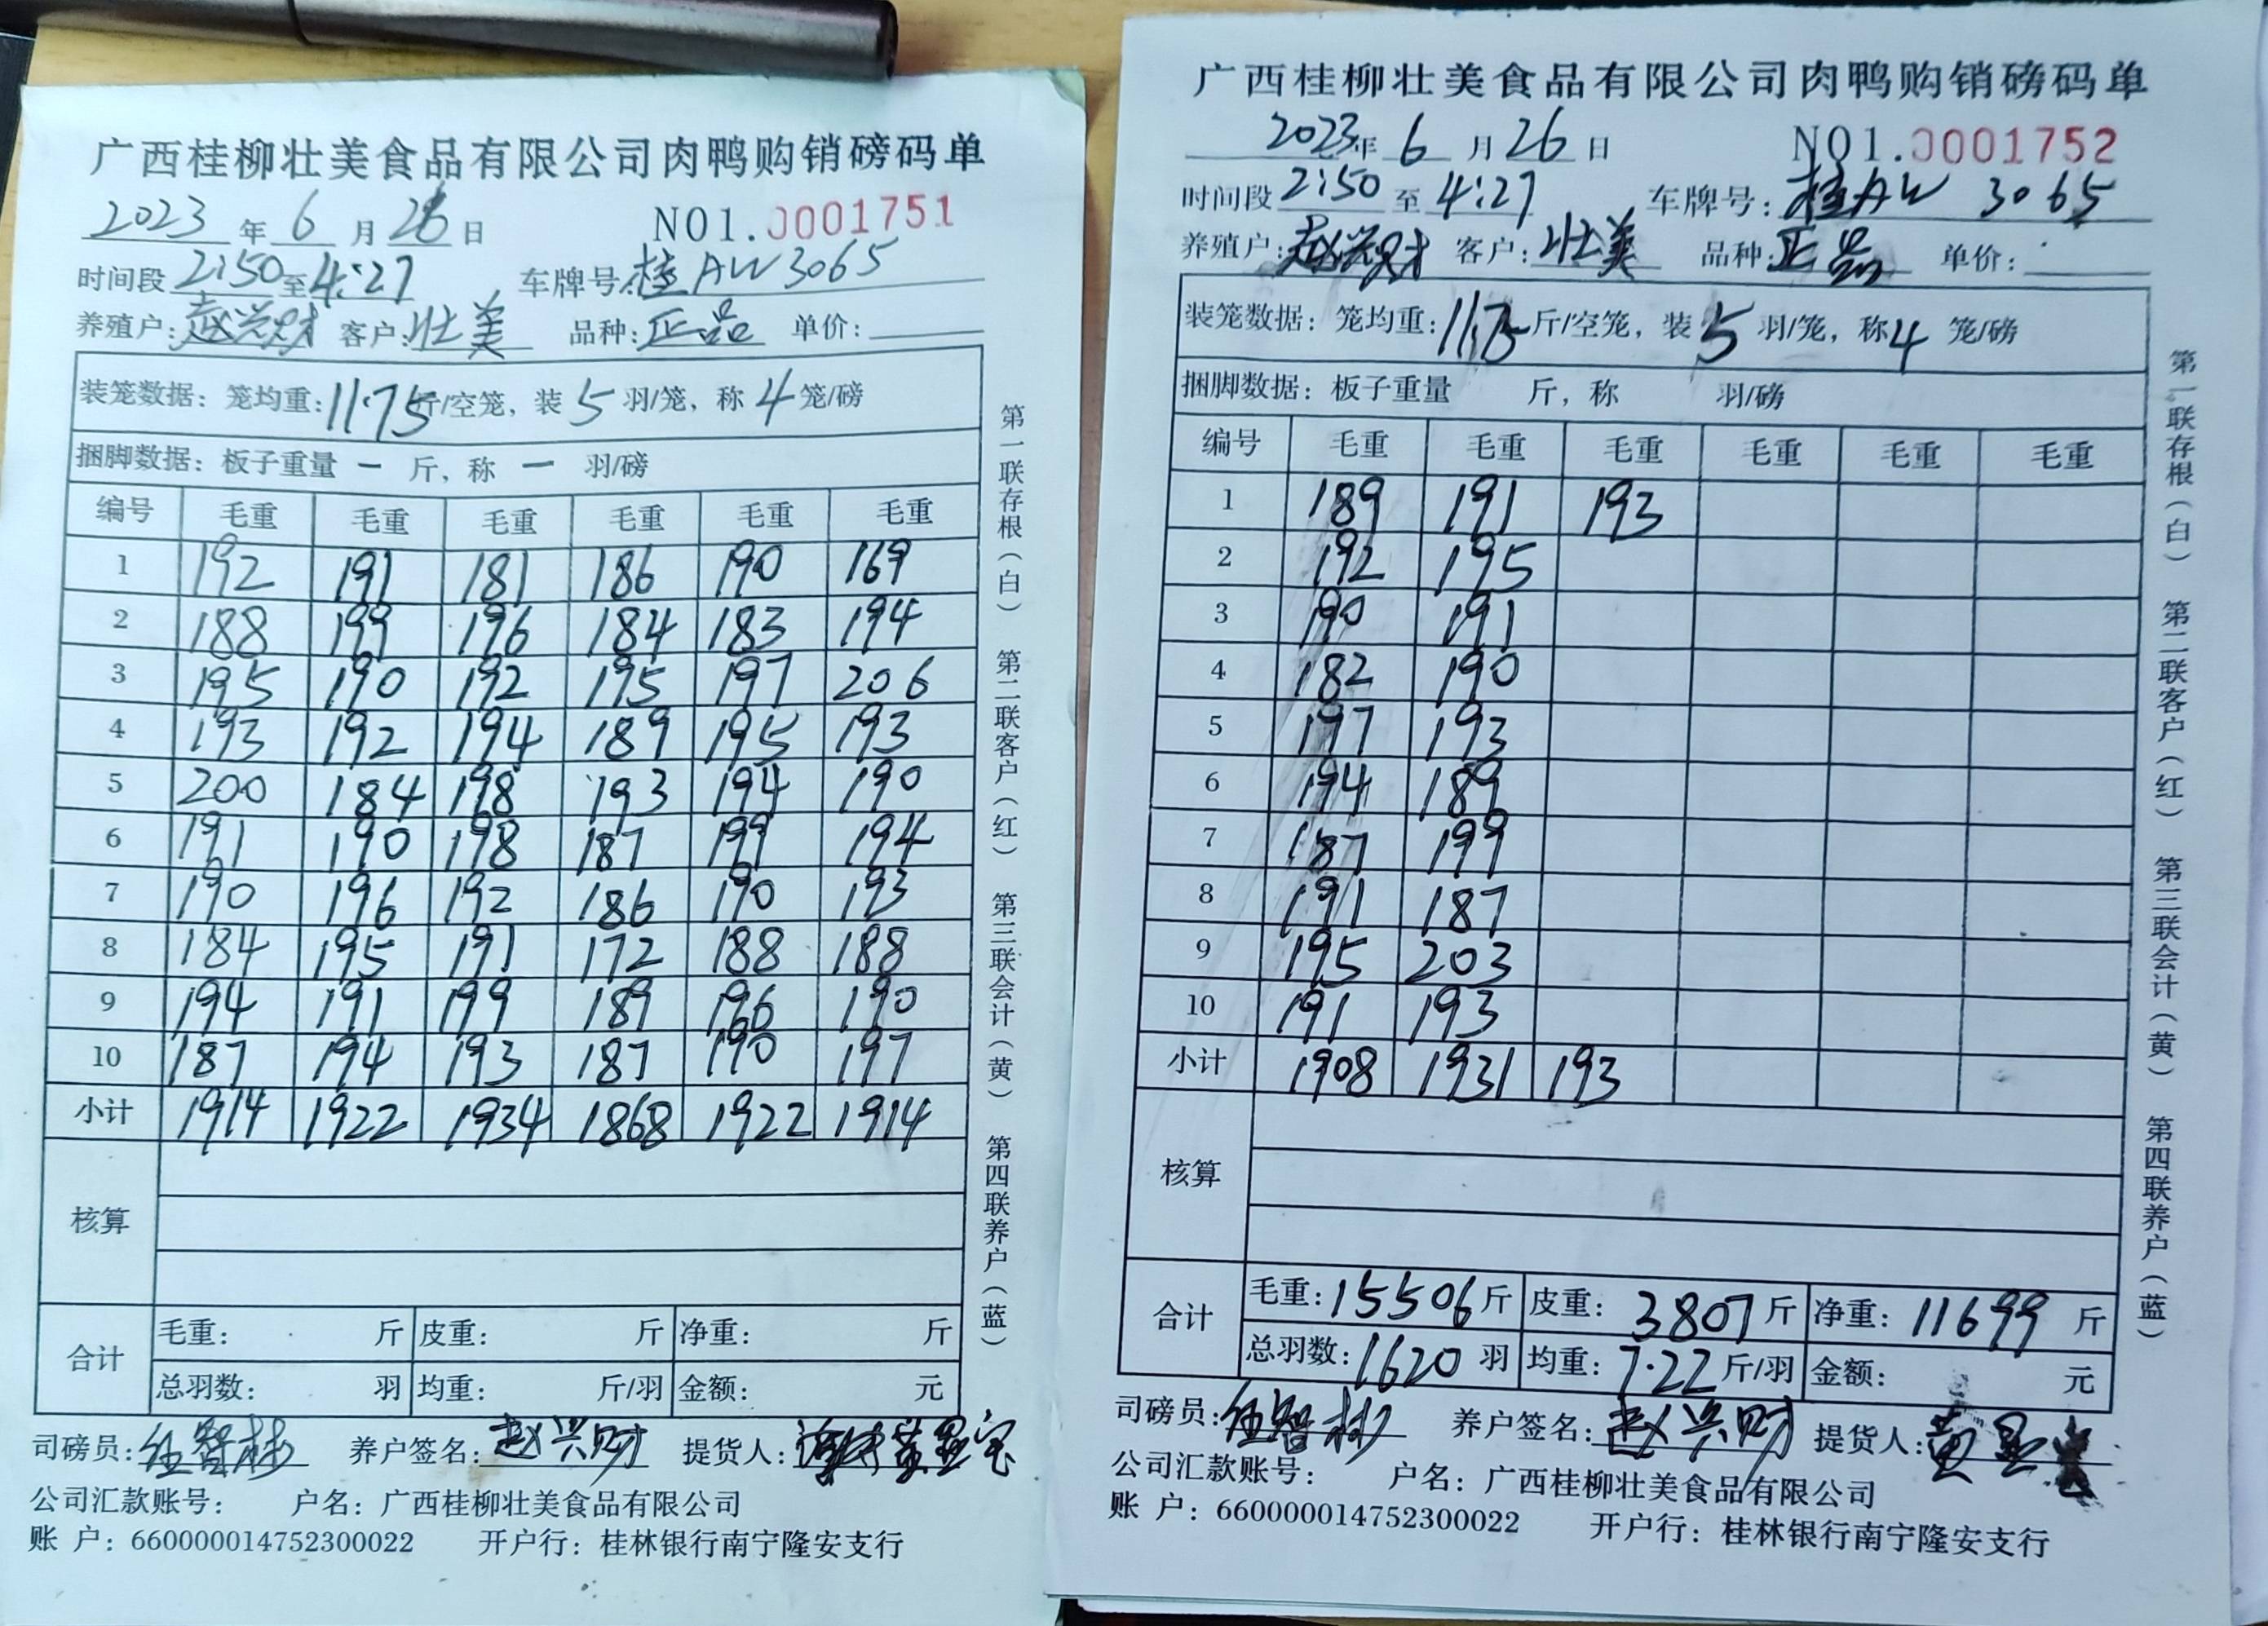 广西桂柳壮美食品有限公司肉鸭购销磅码单
2023年6月26日 NO1.0001751
时间段2:50至4:27 车牌号:桂AW3065
养殖户:赵兴财 客户:壮美 品种:正品 单价:
装笼数据：笼均重:11.75斤/空笼，装5羽/笼，称4笼/磅
捆脚数据：板子重量 一 斤，称 一 羽/磅
编号 毛重 毛重 毛重 毛重 毛重 毛重
1 192 191 181 186 190 169
2 188 199 196 184 183 194
3 195 190 192 195 197 206
4 193 192 194 189 195 193
5 200 184 198 193 194 190
6 191 190 198 187 199 194
7 190 196 192 186 190 193
8 184 195 191 172 188 188
9 194 191 199 189 196 190
10 187 194 193 187 190 197
小计 1914 1922 1934 1868 1922 1914
核算
合计 毛重： 斤 皮重： 斤 净重： 斤
总羽数： 羽 均重： 斤/羽 金额： 元
司磅员: 养户签名:赵兴财 提货人:
公司汇款账号： 户名：广西桂柳壮美食品有限公司
账 户：660000014752300022 开户行：桂林银行南宁隆安支行
第一联存根（白） 第二联客户（红） 第三联会计（黄） 第四联养户（蓝）
广西桂柳壮美食品有限公司肉鸭购销磅码单
2023年6月26日 NO1.0001752
时间段2:50至4:27 车牌号:桂AW 3065
养殖户:赵兴财 客户:壮美 品种:正品 单价:
装笼数据：笼均重:11.75斤/空笼，装5羽/笼，称4笼/磅
捆脚数据：板子重量 斤，称 羽/磅
编号 毛重 毛重 毛重 毛重 毛重 毛重
1 189 191 193
2 192 195
3 190 191
4 182 190
5 197 193
6 194 189
7 187 199
8 191 187
9 195 203
10 191 193
小计 1908 1931 193
核算
合计 毛重:15506斤 皮重：3807斤 净重：11699斤
总羽数:1620羽 均重:7.22斤/羽 金额： 元
司磅员: 养户签名:赵兴财 提货人:
公司汇款账号： 户名：广西桂柳壮美食品有限公司
账 户：660000014752300022 开户行：桂林银行南宁隆安支行
第一联存根（白） 第二联客户（红） 第三联会计（黄） 第四联养户（蓝）